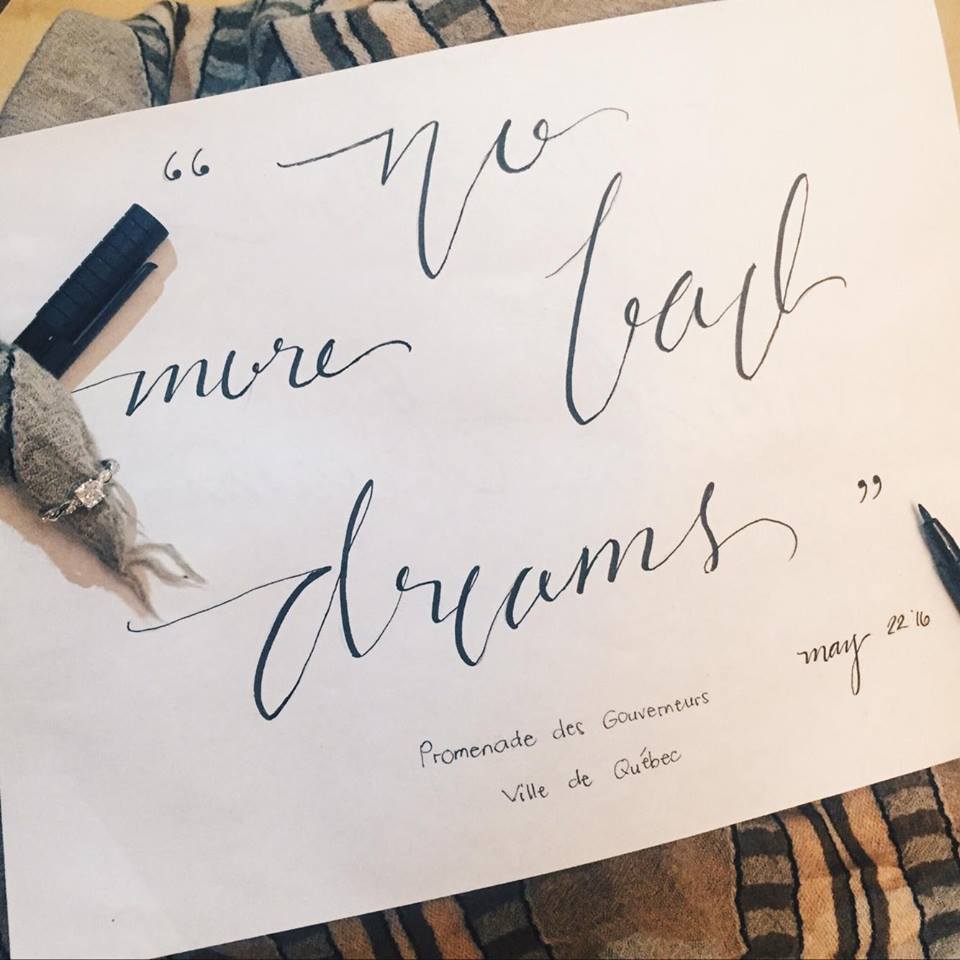 “ no
more bad
dreams ”
may 22 '16
Promenade des Gouverneurs
Ville de Québec